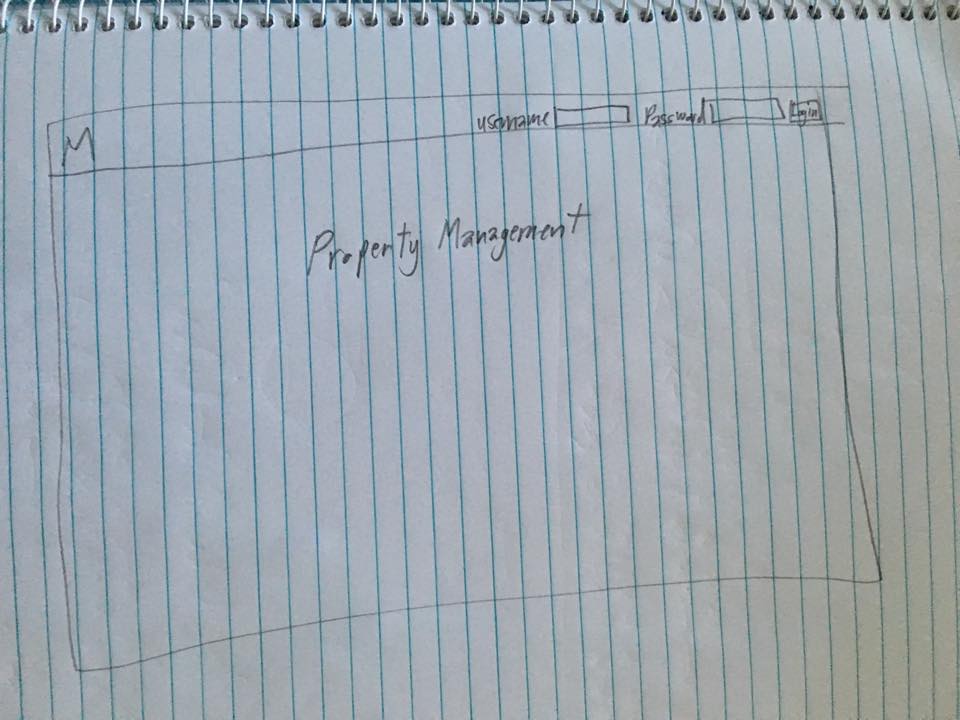 M
username Password Login
Property Management